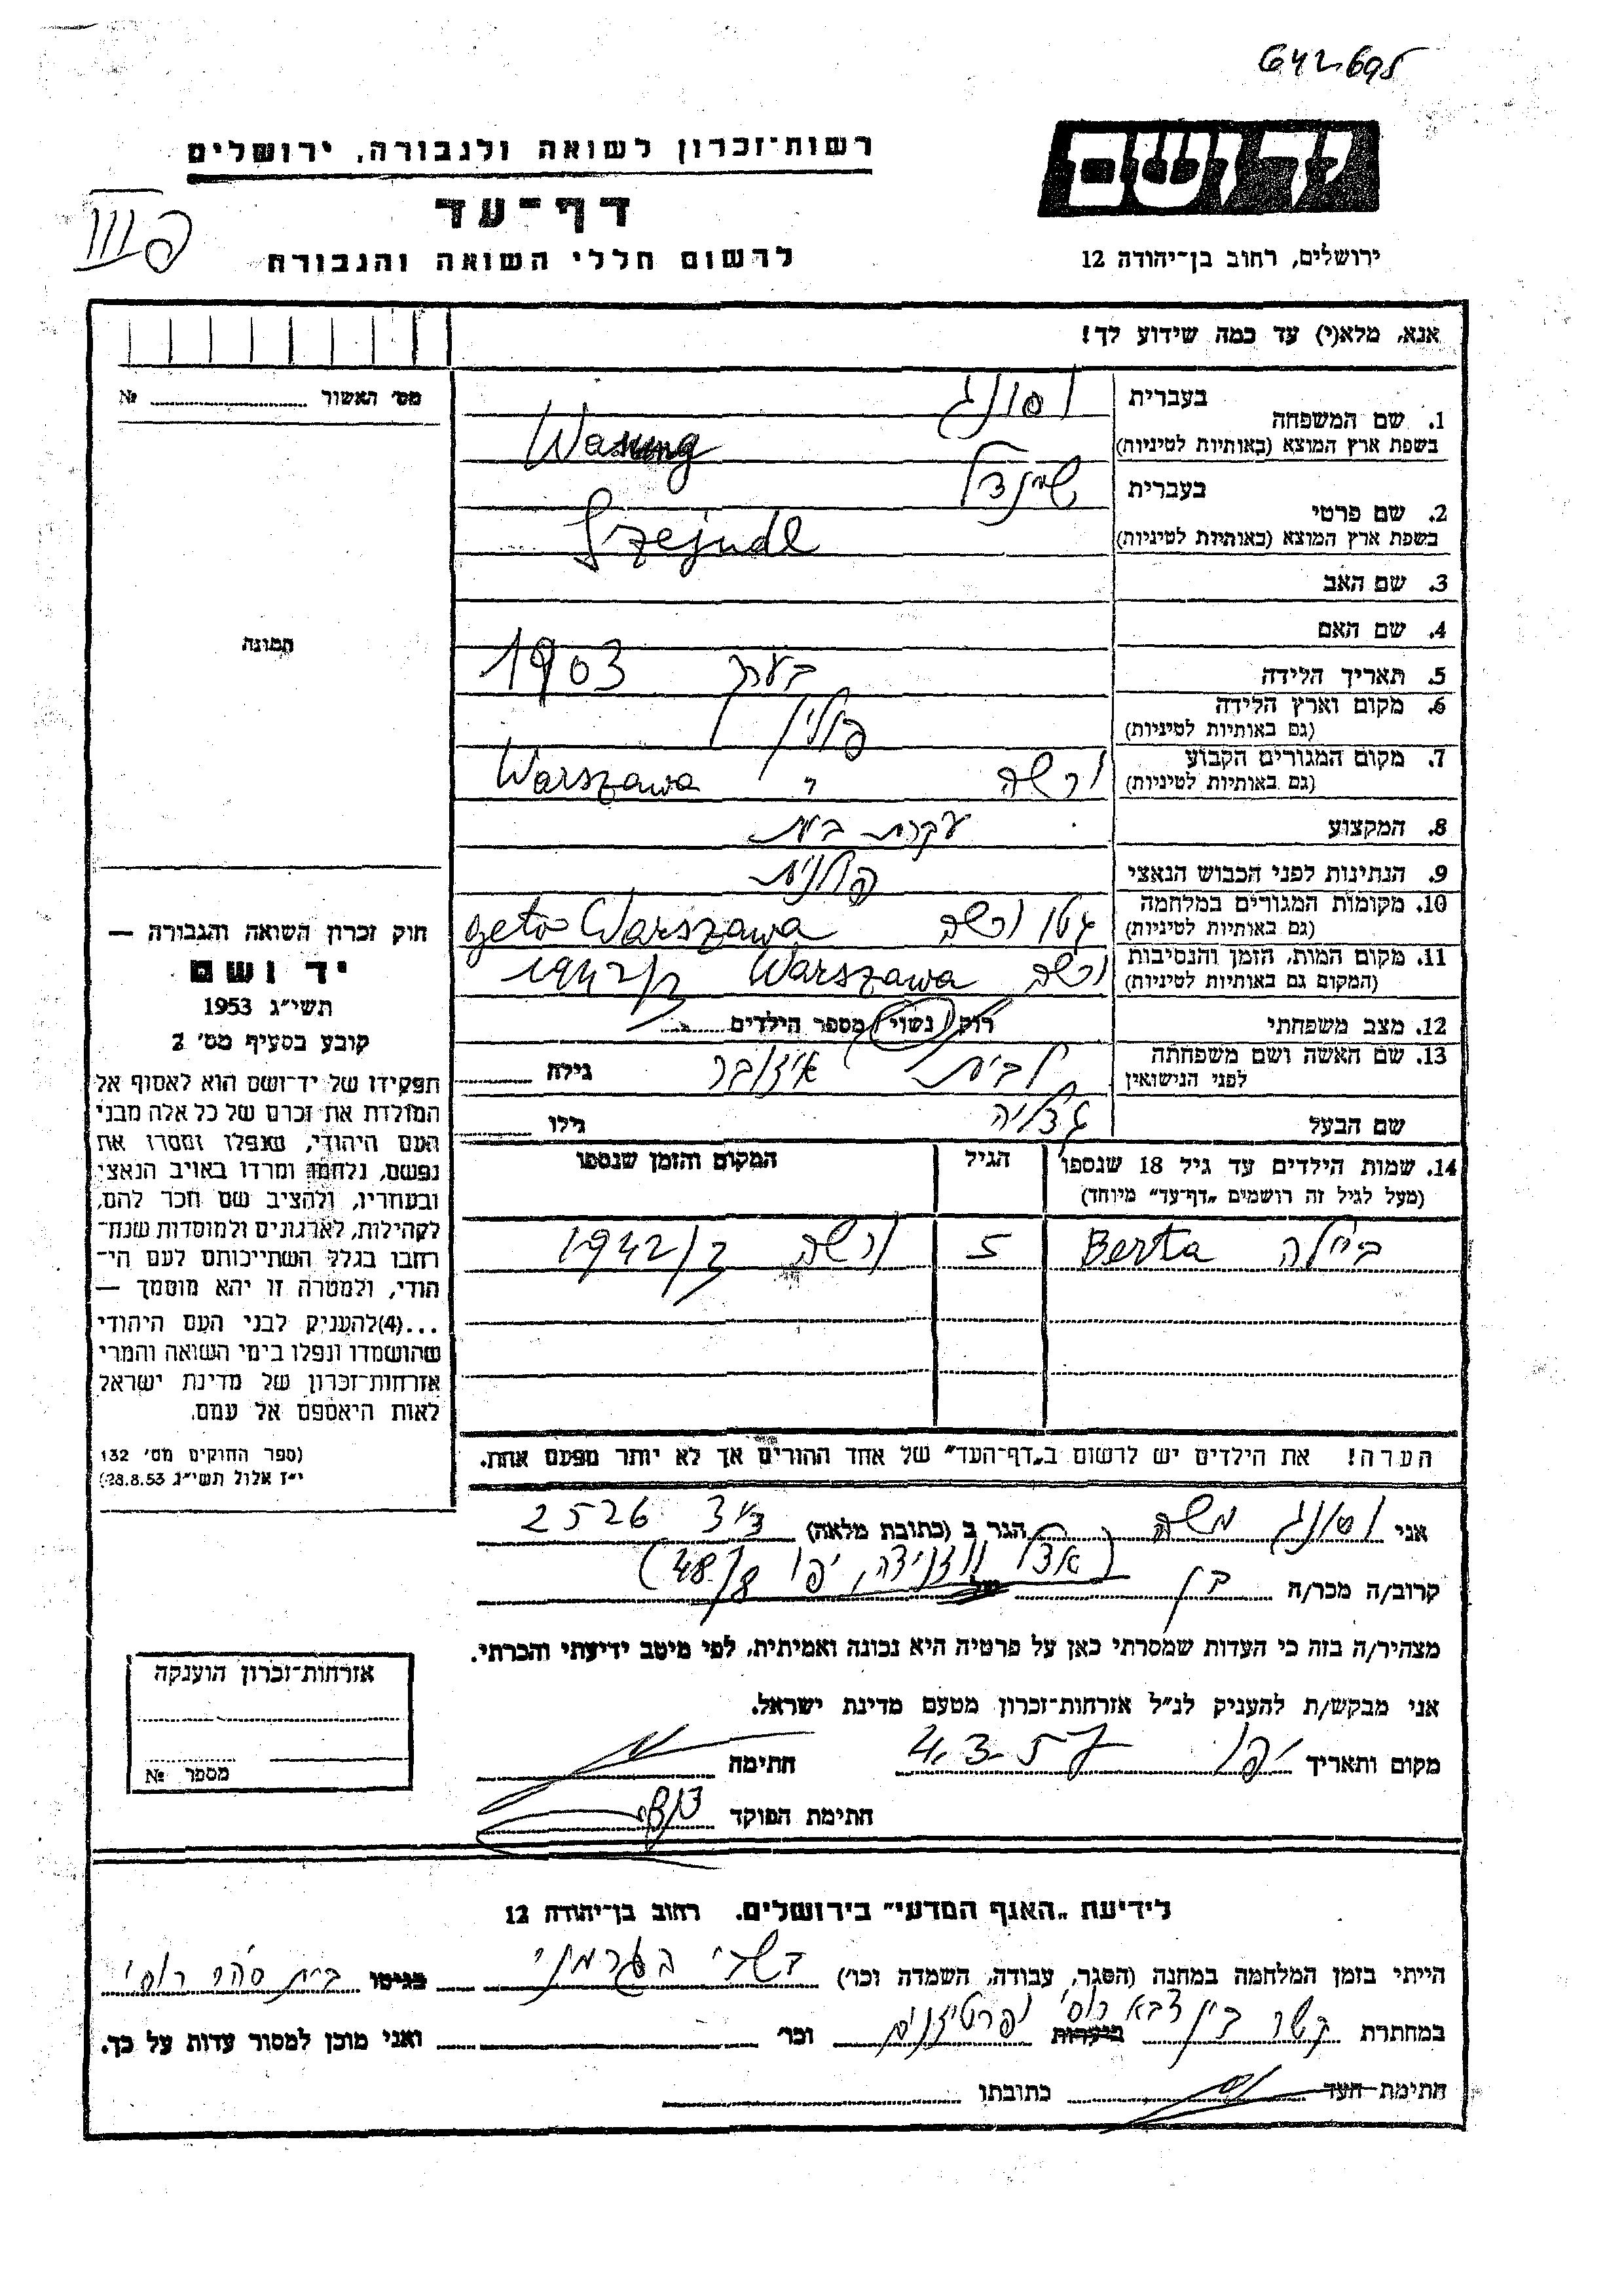 642.695
יד ושם
רשות־זכרון לשואה ולגבורה, ירושלים
דף־עד
לרשום חללי השואה והגבורה
ירושלים, רחוב בן־יהודה 12
אנא, מלא(י) עד כמה שידוע לך!
מס׳ האשור № 
1. שם המשפחה
בעברית וסונג
בשפת ארץ המוצא (באותיות לטיניות) Wasung
2. שם פרטי
בעברית שיינדל
בשפת ארץ המוצא (באותיות לטיניות) Szejndl
3. שם האב
4. שם האם
תמונה
5. תאריך הלידה בערך 1903
6. מקום וארץ הלידה פולין
(גם באותיות לטיניות)
7. מקום המגורים הקבוע ורשה Warszawa
(גם באותיות לטיניות)
8. המקצוע עקרת בית
9. הנתינות לפני הכבוש הנאצי פולנית
10. מקומות המגורים במלחמה גטו ורשה geto Warszawa
(גם באותיות לטיניות)
11. מקום המות, הזמן והנסיבות ורשה Warszawa 1942/3
(המקום גם באותיות לטיניות)
12. מצב משפחתי רוק / נשוי / מספר הילדים
13. שם האשה ושם משפחתה לבית גילה
לפני הנישואין
שם הבעל גדליה גילו
14. שמות הילדים עד גיל 18 שנספו הגיל המקום והזמן שנספו
(מעל לגיל זה רושמים „דף־עד״ מיוחד)
ביילה Berta 5 ורשה 1942/3
הערה! את הילדים יש לרשום ב„דף־העד״ של אחד ההורים אך לא יותר מפעם אחת.
חוק זכרון השואה והגבורה —
יד ושם
תשי״ג 1953
קובע בסעיף מס׳ 2
תפקידו של יד־ושם הוא לאסוף אל
המולדת את זכרם של כל אלה מבני
העם היהודי, שנפלו ומסרו את
נפשם, נלחמו ומרדו באויב הנאצי
ובעוזריו, ולהציב שם וזכר להם,
לקהילות, לארגונים ולמוסדות שנח־
רבו בגלל השתייכותם לעם הי־
הודי, ולמטרה זו יהא מוסמך —
...(4)להעניק לבני העם היהודי
שהושמדו ונפלו בימי השואה והמרי
אזרחות־זכרון של מדינת ישראל
לאות היאספם אל עמם.
(ספר החוקים מס׳ 132
י״ז אלול תשי״ג 28.8.53)
אני וסונג משה הגר ב (כתובת מלאה) 2526
קרוב/ה מכר/ה בן של יפו
מצהיר/ה בזה כי העדות שמסרתי כאן על פרטיה היא נכונה ואמיתית, לפי מיטב ידיעתי והכרתי.
אני מבקש/ת להעניק לנ״ל אזרחות־זכרון מטעם מדינת ישראל.
מקום ותאריך יפו 4.3.57 חתימה
חתימת הפוקד
אזרחות־זכרון הוענקה
מספר №
לידיעת „האגף המדעי״ בירושלים. רחוב בן־יהודה 12
הייתי בזמן המלחמה במחנה (הסגר, עבודה, השמדה וכו׳) בגיטו בית סהר רוסי
במחתרת קשר בין צבא רוסי ופרטיזנים ביערות וכו׳ ואני מוכן למסור עדות על כך.
חתימת העד כתובתו